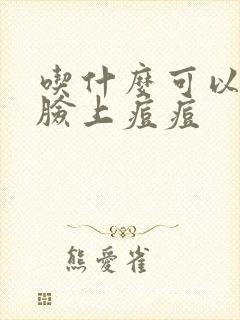 喫什麼可以
臉上痘痘
熊愛雀